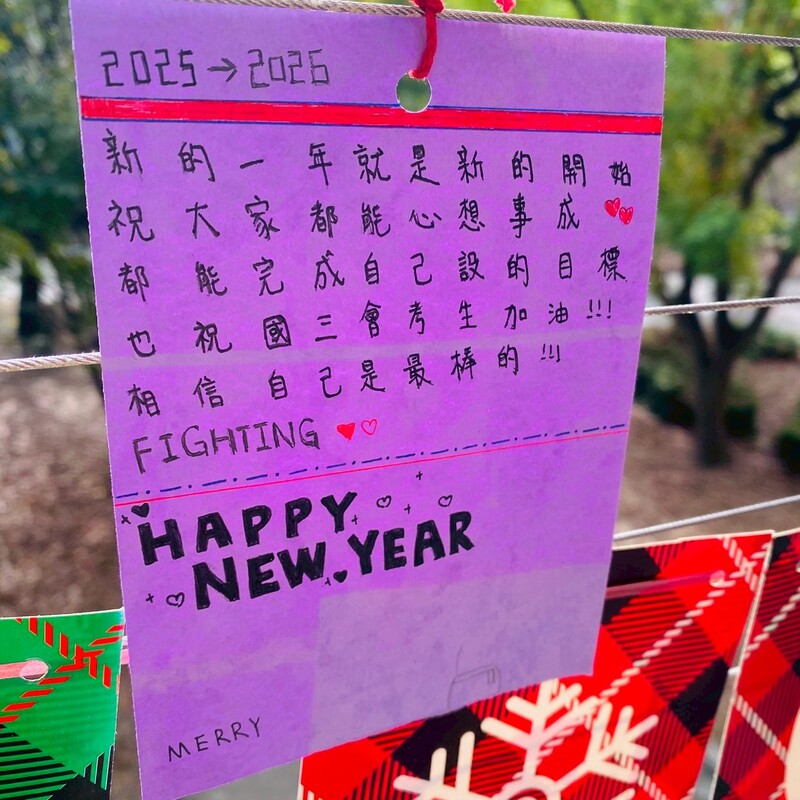 2025→2026
新的一年就是新的開始
祝大家都能心想事成
都能完成自己設的目標
也祝國三會考生加油!!!
相信自己是最棒的!!!
FIGHTING
HAPPY
NEW YEAR
MERRY